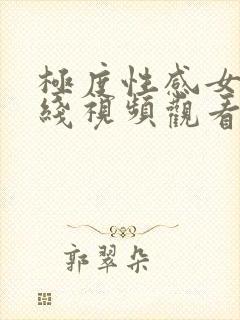 極度性感女
綫視頻觀看
郭翠朵